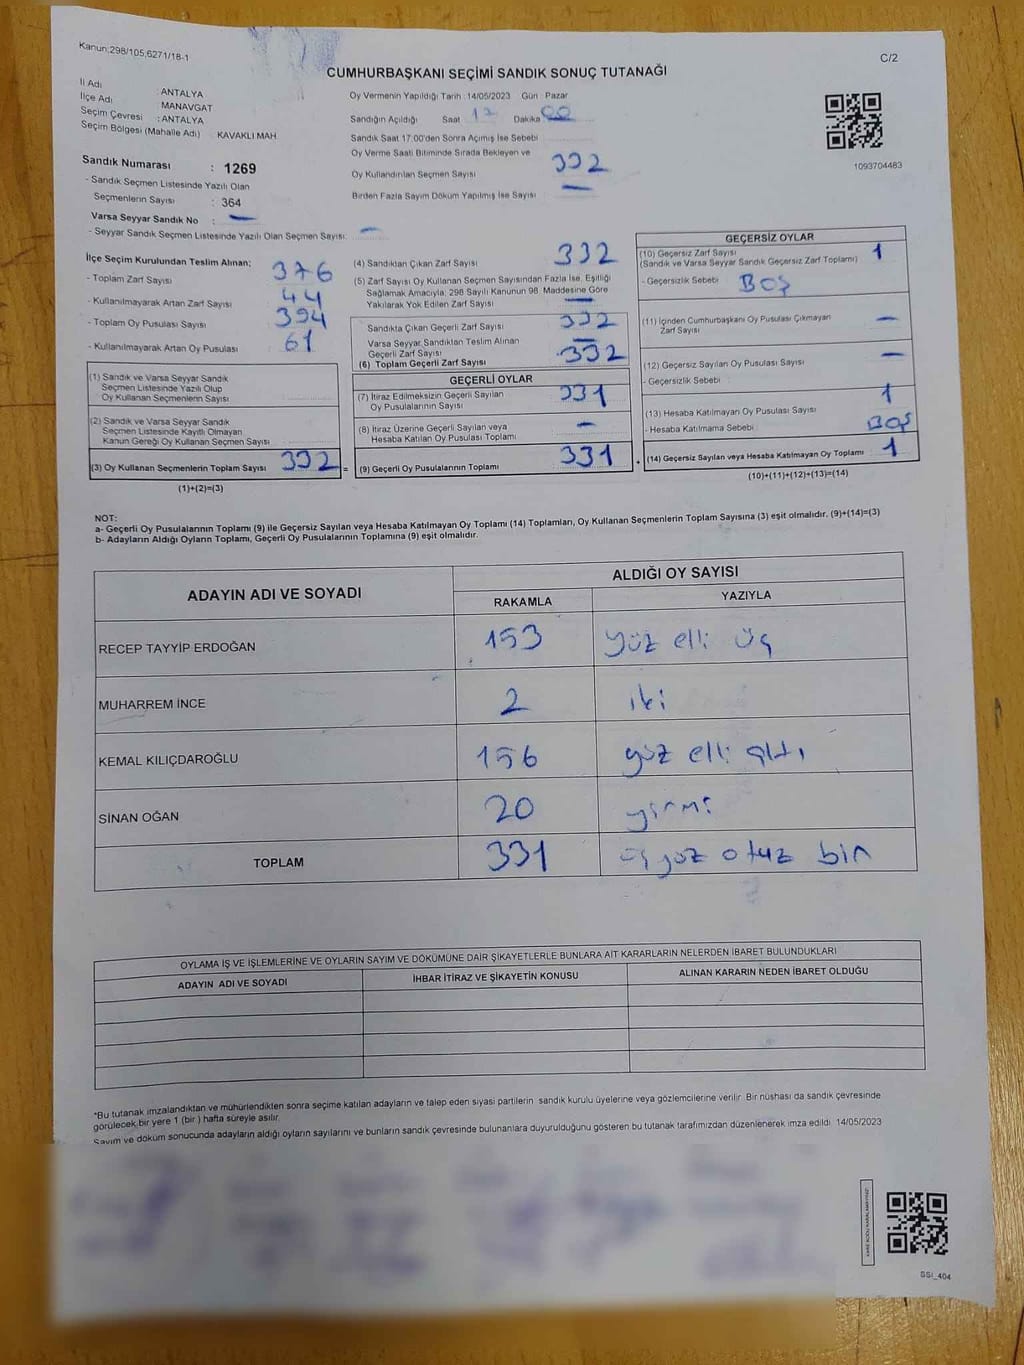 Kanun:298/105,6271/18-1
C/2
CUMHURBAŞKANI SEÇİMİ SANDIK SONUÇ TUTANAĞI
İl Adı : ANTALYA
İlçe Adı : MANAVGAT
Seçim Çevresi : ANTALYA
Seçim Bölgesi (Mahalle Adı) KAVAKLI MAH
Sandık Numarası : 1269
- Sandık Seçmen Listesinde Yazılı Olan
Seçmenlerin Sayısı : 364
Varsa Seyyar Sandık No : —
- Seyyar Sandık Seçmen Listesinde Yazılı Olan Seçmen Sayısı: —
Oy Vermenin Yapıldığı Tarih : 14/05/2023 Gün : Pazar
Sandığın Açıldığı Saat 17 Dakika 00
Sandık Saat 17:00'den Sonra Açımış İse Sebebi
Oy Verme Saati Bitiminde Sırada Bekleyen ve
Oy Kullandırılan Seçmen Sayısı 332
Birden Fazla Sayım Döküm Yapılmış İse Sayısı —
1093704483
İlçe Seçim Kurulundan Teslim Alınan;
- Toplam Zarf Sayısı 376
- Kullanılmayarak Artan Zarf Sayısı 44
- Toplam Oy Pusulası Sayısı 394
- Kullanılmayarak Artan Oy Pusulası 61
(1) Sandık ve Varsa Seyyar Sandık
Seçmen Listesinde Yazılı Olup
Oy Kullanan Seçmenlerin Sayısı
(2) Sandık ve Varsa Seyyar Sandık
Seçmen Listesinde Kayıtlı Olmayan
Kanun Gereği Oy Kullanan Seçmen Sayısı
(3) Oy Kullanan Seçmenlerin Toplam Sayısı 332 =
(1)+(2)=(3)
(4) Sandıktan Çıkan Zarf Sayısı 332
(5) Zarf Sayısı Oy Kullanan Seçmen Sayısından Fazla İse, Eşitliği
Sağlamak Amacıyla; 298 Sayılı Kanunun 98. Maddesine Göre
Yakılarak Yok Edilen Zarf Sayısı —
Sandıkta Çıkan Geçerli Zarf Sayısı 332
Varsa Seyyar Sandıktan Teslim Alınan
Geçerli Zarf Sayısı —
(6) Toplam Geçerli Zarf Sayısı 332
GEÇERLİ OYLAR
(7) İtiraz Edilmeksizin Geçerli Sayılan
Oy Pusulalarının Sayısı 331
(8) İtiraz Üzerine Geçerli Sayılan veya
Hesaba Katılan Oy Pusulası Toplamı —
(9) Geçerli Oy Pusulalarının Toplamı 331
GEÇERSİZ OYLAR
(10) Geçersiz Zarf Sayısı 1
(Sandık ve Varsa Seyyar Sandık Geçersiz Zarf Toplamı)
- Geçersizlik Sebebi BOŞ
(11) İçinden Cumhurbaşkanı Oy Pusulası Çıkmayan
Zarf Sayısı —
(12) Geçersiz Sayılan Oy Pusulası Sayısı —
- Geçersizlik Sebebi
(13) Hesaba Katılmayan Oy Pusulası Sayısı 1
- Hesaba Katılmama Sebebi BOŞ
(14) Geçersiz Sayılan veya Hesaba Katılmayan Oy Toplamı 1
(10)+(11)+(12)+(13)=(14)
NOT:
a- Geçerli Oy Pusulalarının Toplamı (9) ile Geçersiz Sayılan veya Hesaba Katılmayan Oy Toplamı (14) Toplamları, Oy Kullanan Seçmenlerin Toplam Sayısına (3) eşit olmalıdır. (9)+(14)=(3)
b- Adayların Aldığı Oyların Toplamı, Geçerli Oy Pusulalarının Toplamına (9) eşit olmalıdır.
ADAYIN ADI VE SOYADI ALDIĞI OY SAYISI
RAKAMLA YAZIYLA
RECEP TAYYİP ERDOĞAN 153 yüz elli üç
MUHARREM İNCE 2 iki
KEMAL KILIÇDAROĞLU 156 yüz elli altı
SİNAN OĞAN 20 yirmi
TOPLAM 331 üçyüz otuz bir
OYLAMA İŞ VE İŞLEMLERİNE VE OYLARIN SAYIM VE DÖKÜMÜNE DAİR ŞİKAYETLERLE BUNLARA AİT KARARLARIN NELERDEN İBARET BULUNDUKLARI
ADAYIN ADI VE SOYADI İHBAR İTİRAZ VE ŞİKAYETİN KONUSU ALINAN KARARIN NEDEN İBARET OLDUĞU
*Bu tutanak imzalandıktan ve mühürlendikten sonra seçime katılan adayların ve talep eden siyasi partilerin sandık kurulu üyelerine veya gözlemcilerine verilir. Bir nüshası da sandık çevresinde
görülecek bir yere 1 (bir) hafta süreyle asılır.
Sayım ve döküm sonucunda adayların aldığı oyların sayılarını ve bunların sandık çevresinde bulunanlara duyurulduğunu gösteren bu tutanak tarafımızdan düzenlenerek imza edildi. 14/05/2023
SSI_404